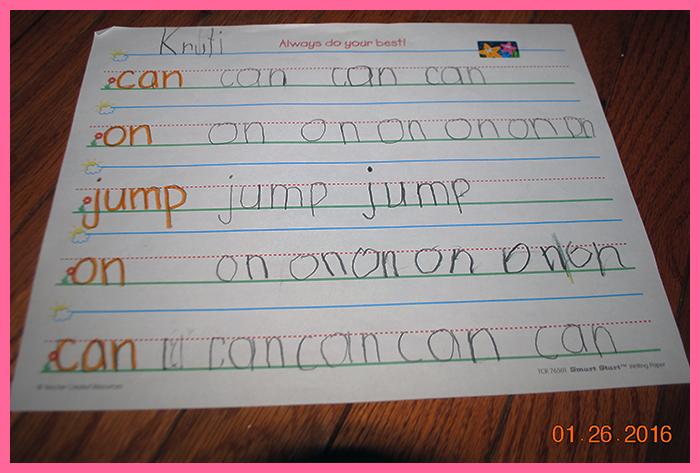 Kruti Always do your best!
can can can can
on on on on on on on
jump jump jump
on on on on on on on
can can can can can
© Teacher Created Resources
TCR 76501 Smart Start™ Writing Paper
01.26.2016